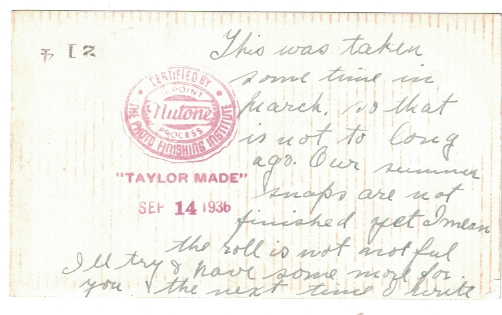 This was taken
some time in
March. so that
is not to long
ago. Our summer
snaps are not
finished yet I mean
the roll is not
I'll try & have some more for
you & the next time I write
CERTIFIED BY
9 POINT
Nutone
PROCESS
THE PHOTO FINISHING INSTITUTE
"TAYLOR MADE"
SEP 14 1936